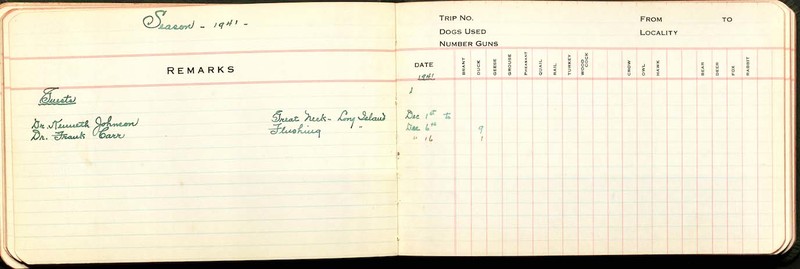 Season - 1941 -
REMARKS
Guests
Dr. Kenneth Johnson Great Neck - Long Island
Dr. Frank Carr Flushing "
TRIP NO. FROM TO
DOGS USED LOCALITY
NUMBER GUNS
DATE BRANT DUCK GEESE GROUSE PHEASANT QUAIL RAIL TURKEY WOOD COCK CROW OWL HAWK BEAR DEER FOX RABBIT
1941
Dec 1st to
Dec 6th 9
" 16 1